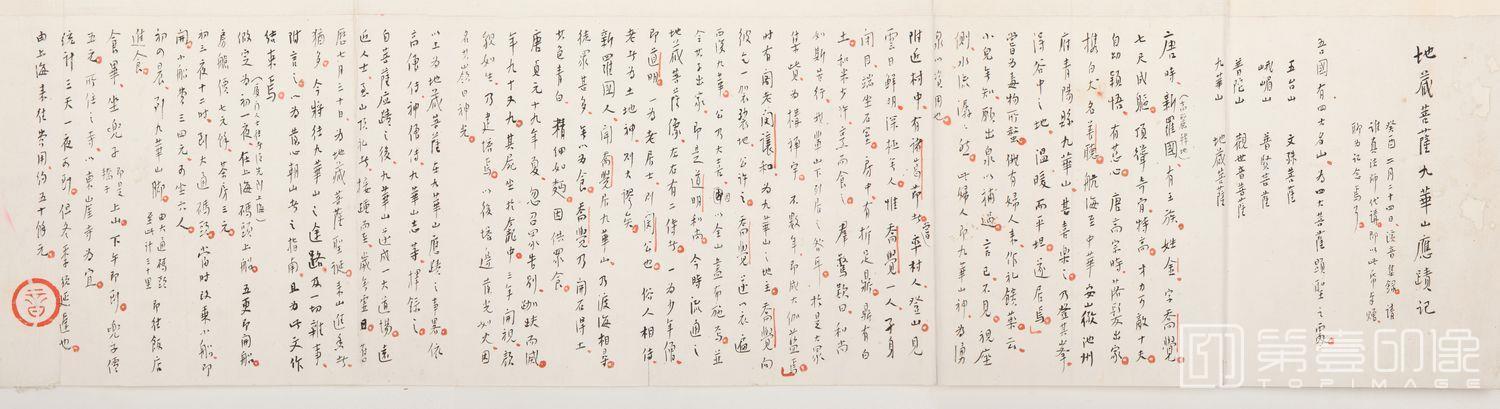 地藏菩薩九華山應蹟記
癸酉二月二十四日、演音集録、請
誰真法師代講、即以此
聊為記念焉耳。
吾國有四大名山、為四大菩薩顯聖之處。
五台山 文殊菩薩
峨嵋山 普賢菩薩
普陀山 觀世音菩薩
九華山 地藏菩薩
唐時、新羅國、有王族、姓金、字喬覺、
七尺成軀、頂聳奇骨、特高、才力可敵十夫。
自幼穎悟、有慈心。唐高宗時、落髮出家、
攜白犬名善聽、航海至中華安徽池州
府青陽縣九華山、甚喜樂之、乃登其峯、
得谷中之地、溫暖而平坦、遂居焉。
嘗為毒物所螫、俄有婦人來作禮饋藥云、
小兒年知、願出泉以補過。言已不見、視座
側、水流潺潺。此婦人即九華山神、為
泉以資用也。
附近村中、有諸葛節者、率村人登山、見
雲日鮮明、深極無人、惟喬覺一人、孑身
閉目端坐石室。房中有折足鼎、鼎有白
土和米少許、烹而食之。羣驚歎曰、和尚
如斯苦行、我輩山下列居之咎耳。於是大眾
集資、為構禪宇、不數年、即成大伽藍焉。
時有閣老閔讓和、為九華山之地主、喬覺向
彼乞一袈裟地、公許之。喬覺遂以衣遍
覆九華山、公乃大喜、以全山盡布施焉、並
令其子出家、即是道明和尚。今時流通之
地藏菩薩像、左右有二侍者、一為少年僧、
即道明、一為老居士、即閔公也。俗人相傳、
老者為土地神、則大謬矣。
新羅國人、聞喬覺居九華山、乃渡海相尋、
徒眾甚多、無以為食。喬覺乃開石得土、
其色青白、精細如麵、因供眾食。
唐貞元十九年夏、忽召眾告別、跏趺而滅、
年九十九。其屍坐於龕中、三年開視、顏
貌如生、乃建塔焉。以後塔邊、有光如火、因
名其嶺曰神光。
以上為地藏菩薩在九華山應蹟之事畧、依
高僧傳、神僧傳、九華山志等擇錄之。
自菩薩應蹟之後、九華山遂成一大道場、遠
近人士、來山頂禮者、接踵而至、歲無虛日。舊
歷七月三十日、為地藏菩薩聖誕、來山進香者
猶多。今特往九華山之途路及一切雜事、
附言之、以為發心朝山者之指南、且為此文作
結束焉。
假定為初一夜、在上海碼頭上船、五更即開船、
房艙價七元餘、茶房三元。
初三夜十二時、即大通碼頭、當時改乘小船、即
開、小船費三四元、可坐六人。
初四晨、到九華山脚、由大通碼頭至此計三十里、即往飯店
進食。
食畢、坐兜子、即是椅子、上山、下午即到、兜子價
五元。所住之寺、以東崖寺為宜。
統計三天一夜可到。但冬季須延遲也。
由上海來往費用約五十餘元。
第壹印像
TOPIMAGE